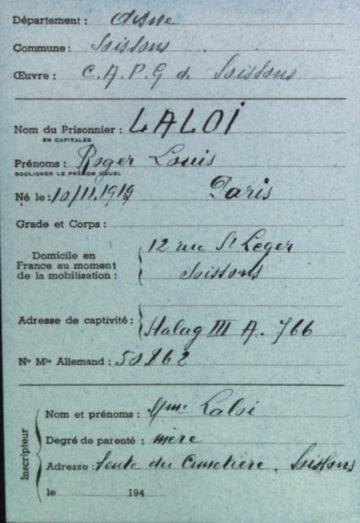 Département : Aisne
Commune : Soissons
Œuvre : C.A.P.G de Soissons
Nom du Prisonnier : LALOI
EN CAPITALES
Prénoms : Roger Louis
SOULIGNER LE PRÉNOM USUEL
Né le : 10/11.1919 Paris
Grade et Corps :
Domicile en
France au moment
de la mobilisation :
12 rue St Leger
Soissons
Adresse de captivité : Stalag III A. 766
No Mle Allemand : 50862
Inscripteur
Nom et prénoms : Mme Laloi
Degré de parenté : mère
Adresse : Sente du Cimetière. Soissons
le 194